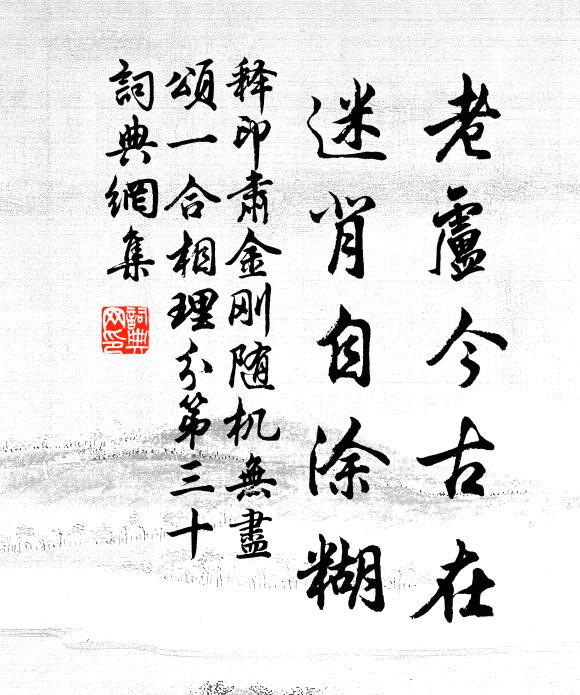 老盧今古在
迷肖自涂糊
释印肅金刚随机無盡
頌一合相理分第三十
詞典網集
詞典网印